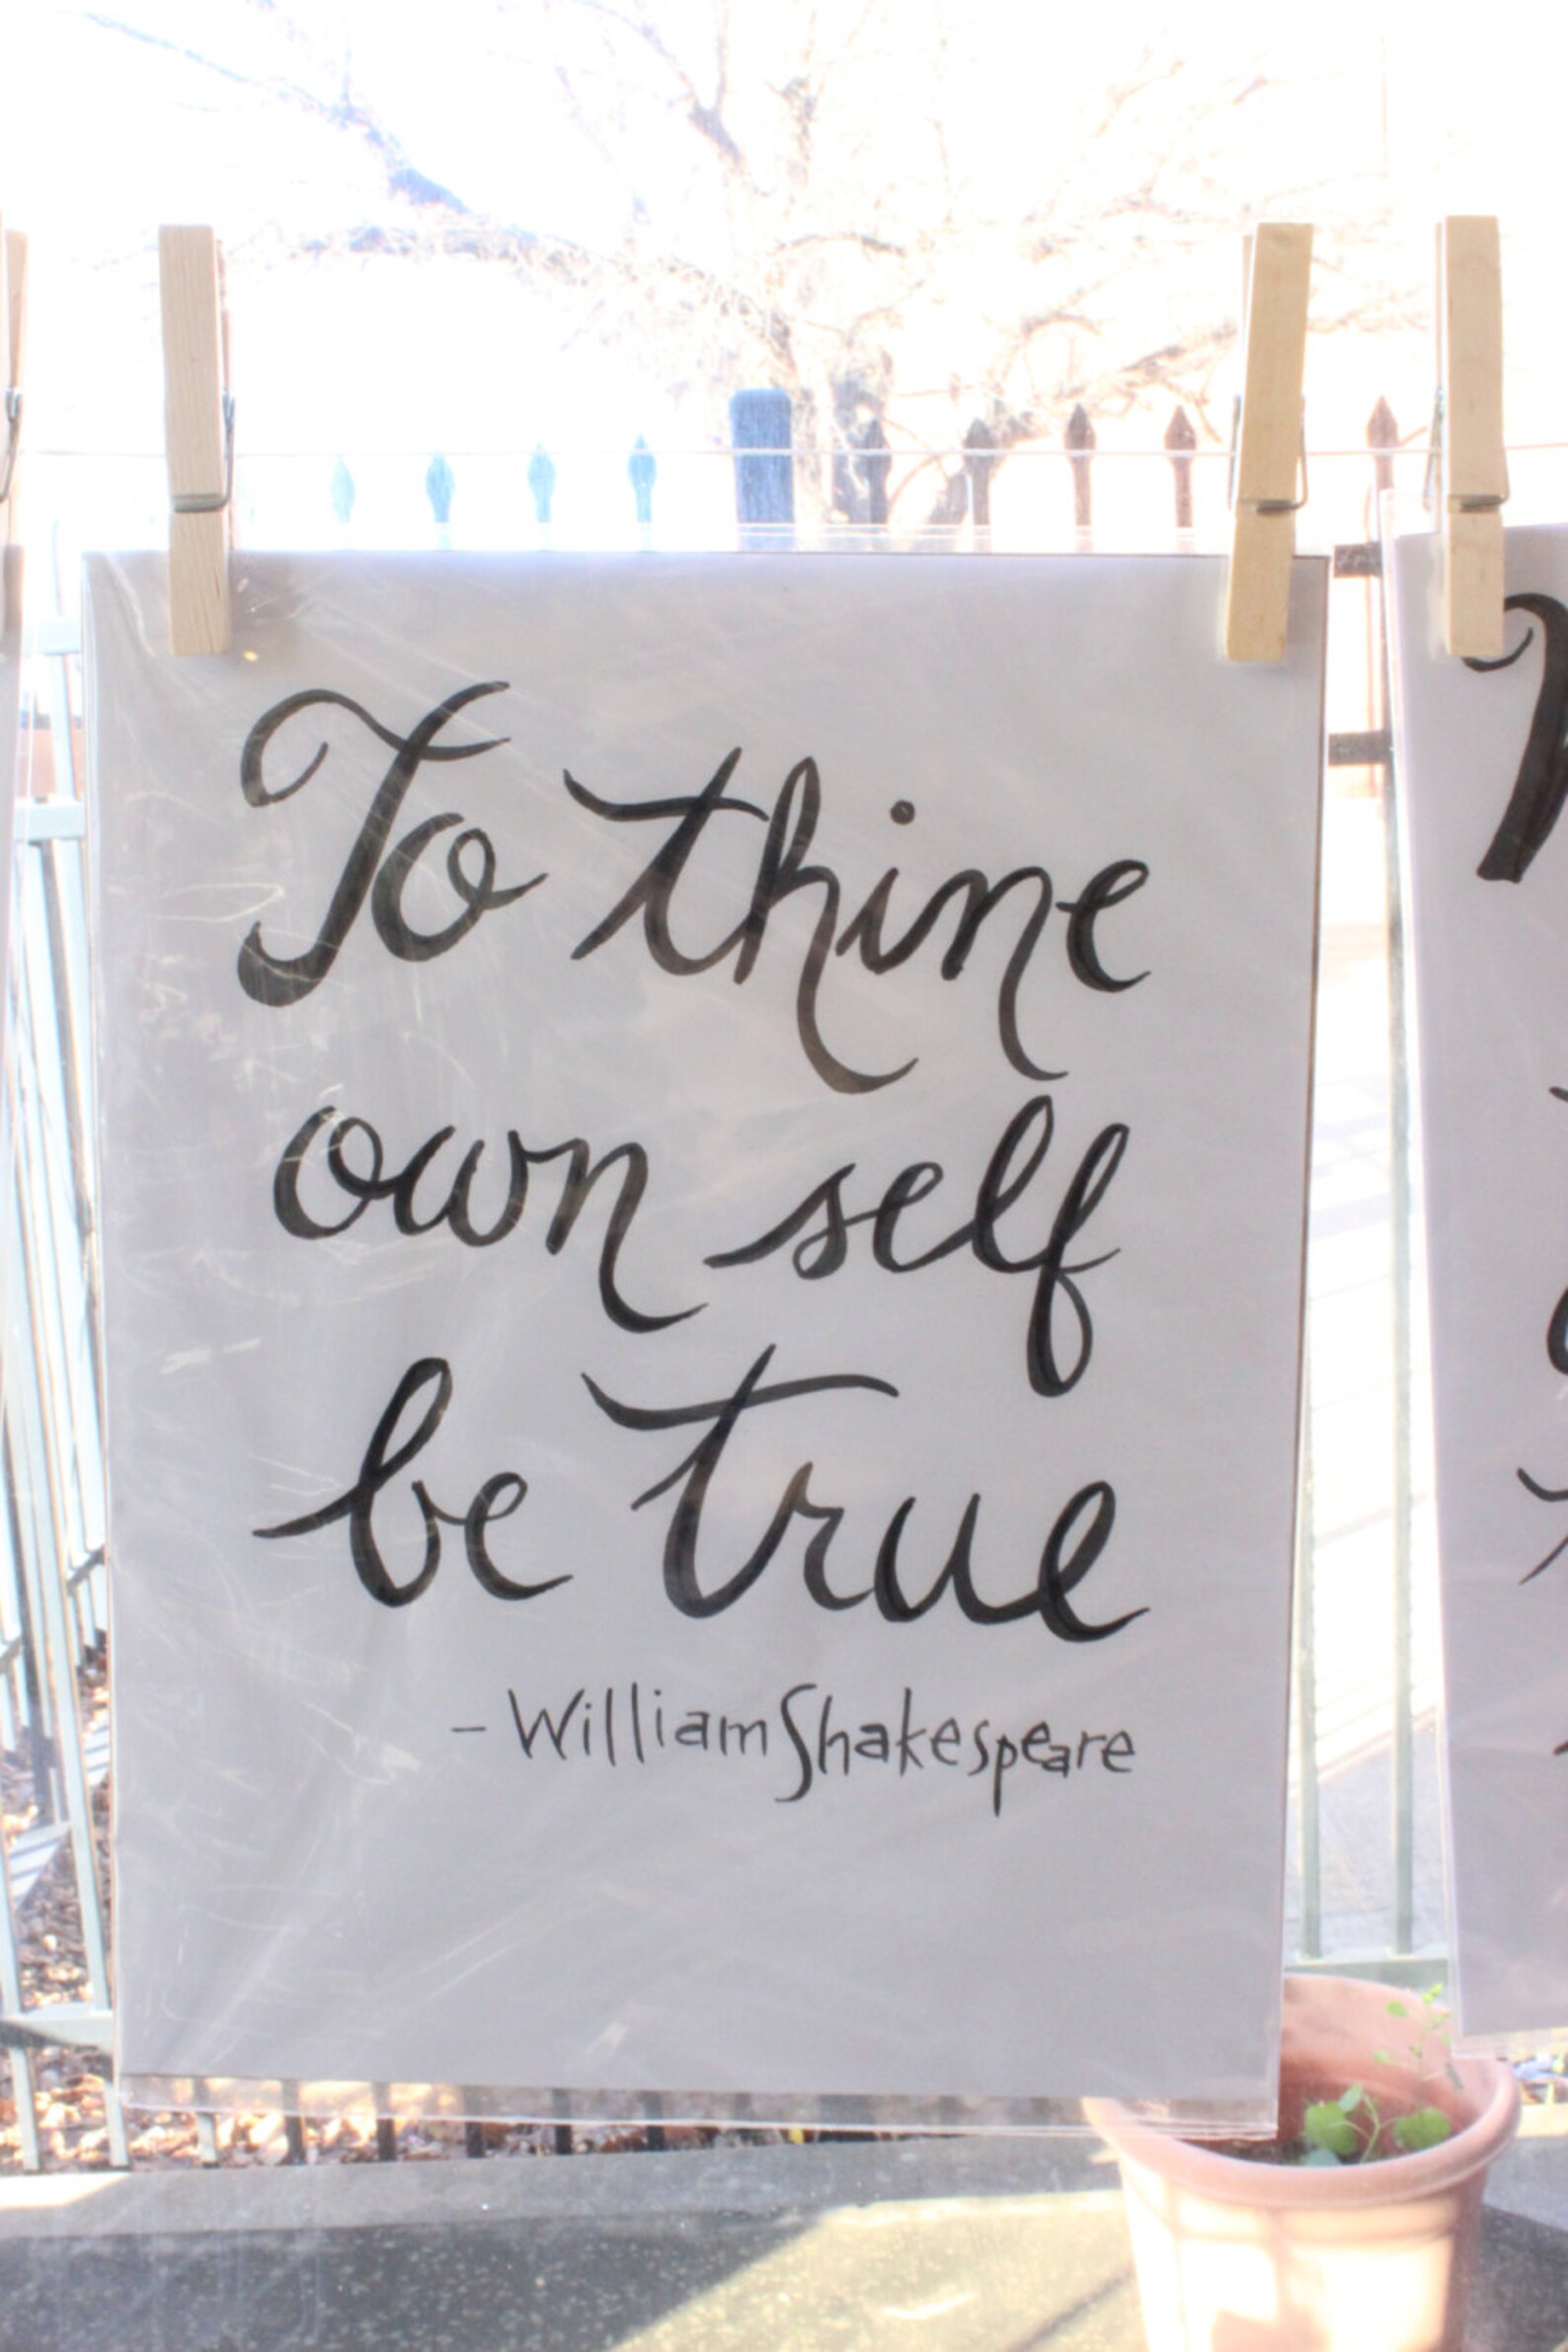 To thine
own self
be true
- William Shakespeare